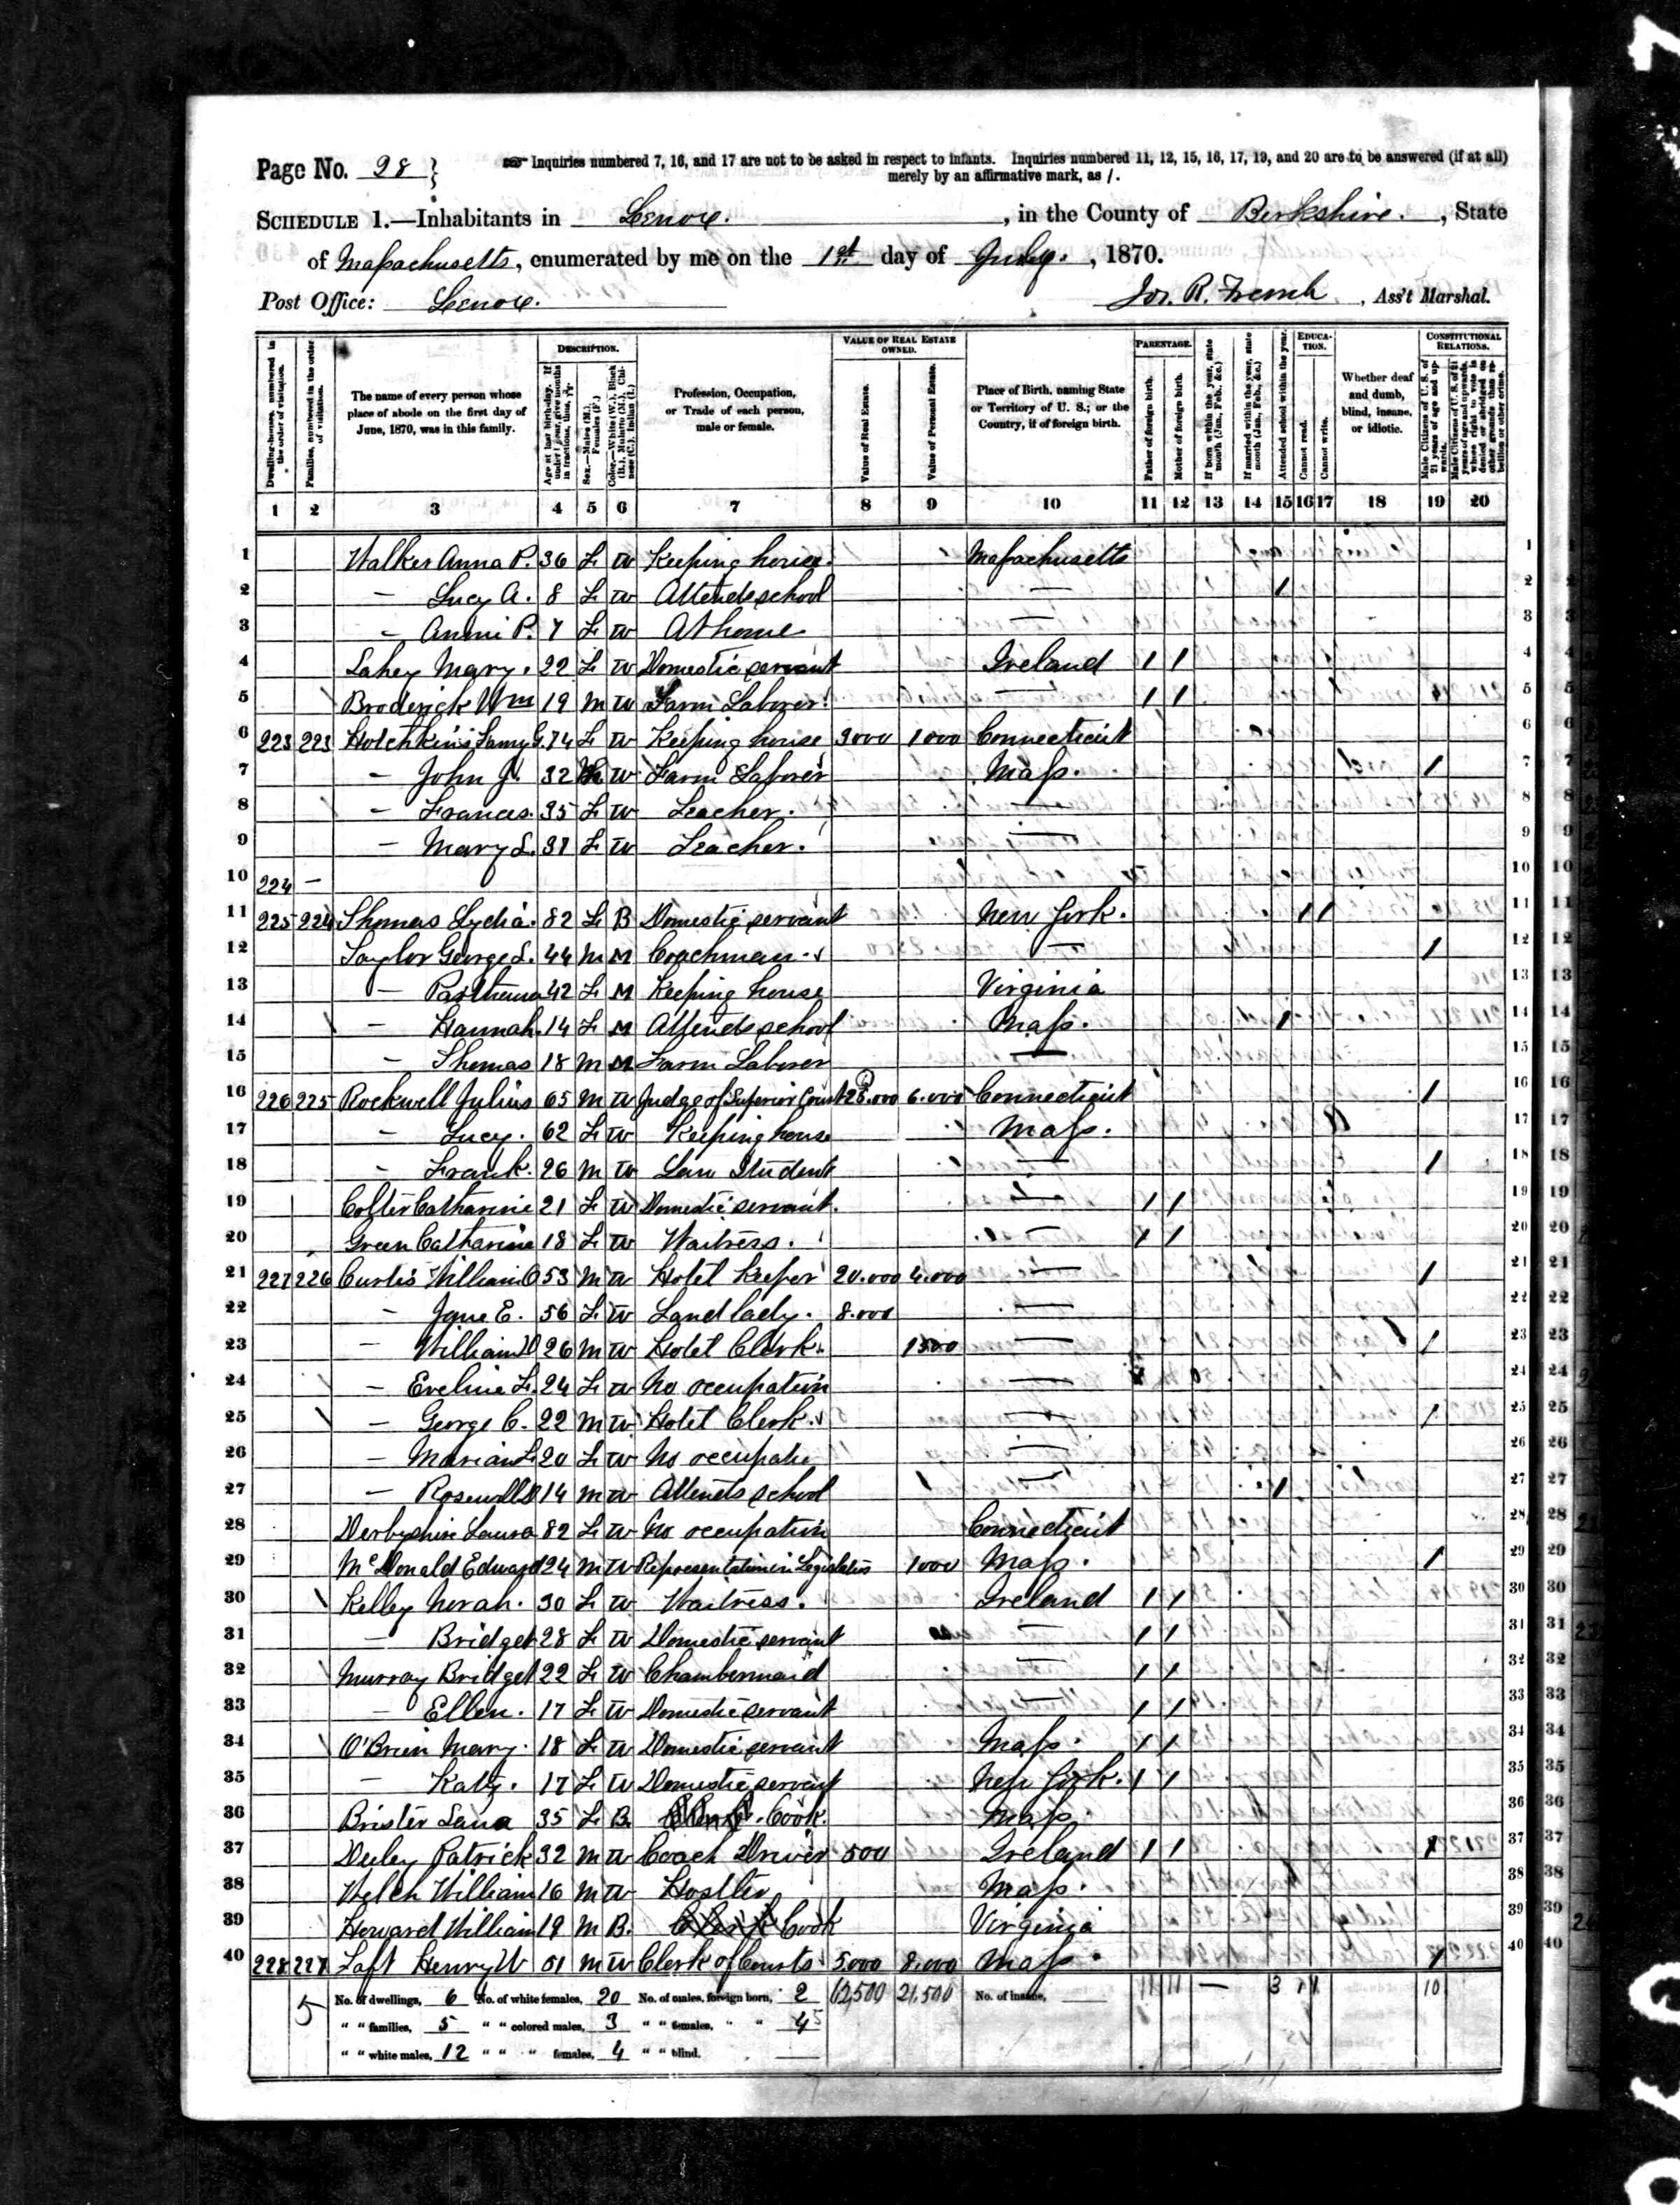 Page No. 28
Inquiries numbered 7, 16, and 17 are not to be asked in respect to infants. Inquiries numbered 11, 12, 15, 16, 17, 19, and 20 are to be answered (if at all)
merely by an affirmative mark, as /.
SCHEDULE 1.—Inhabitants in Lenox. , in the County of Berkshire. , State
of Massachusetts, enumerated by me on the 1st day of July. , 1870.
Post Office: Lenox. Jos. R. French , Ass't Marshal.
Dwelling-houses, numbered in the order of visitation.
Families, numbered in the order of visitation.
The name of every person whose place of abode on the first day of June, 1870, was in this family.
DESCRIPTION.
Age at last birth-day. If under 1 year, give months in fractions, thus,
Sex.—Males (M.), Females (F.)
Color.—White (W.), Black (B.), Mulatto (M.), Chinese (C.), Indian (I.)
Profession, Occupation, or Trade of each person, male or female.
VALUE OF REAL ESTATE OWNED.
Value of Real Estate.
Value of Personal Estate.
Place of Birth, naming State or Territory of U. S.; or the Country, if of foreign birth.
PARENTAGE.
Father of foreign birth.
Mother of foreign birth.
If born within the year, state month (Jan., Feb., &c.)
If married within the year, state month (Jan., Feb., &c.)
Attended school within the year.
EDUCATION.
Cannot read.
Cannot write.
Whether deaf and dumb, blind, insane, or idiotic.
CONSTITUTIONAL RELATIONS.
Male Citizens of U. S. of 21 years of age and upwards.
Male Citizens of U. S. of 21 years of age and upwards, whose right to vote is denied or abridged on other grounds than rebellion or other crime.
1 2 3 4 5 6 7 8 9 10 11 12 13 14 15 16 17 18 19 20
1 Walker Anna P. 36 F W Keeping house. Massachusetts 1
2 — Lucy A. 8 F W Attends school — / 2
3 — Annie P. 7 F W At home — 3
4 Lahey Mary. 22 F W Domestic servant Ireland / / 4
5 Broderick Wm 19 M W Farm Laborer — / / 5
6 223 223 Hotchkins Fanny G. 74 F W Keeping house 3000 1000 Connecticut 6
7 — John 32 M W Farm Laborer Mass. / 7
8 — Frances. 35 F W Teacher. — 8
9 — Mary S. 31 F W Teacher. — 9
10 224 — 10
11 225 224 Thomas Lydia. 82 F B Domestic servant New York. / / 11
12 Taylor George S. 44 M M Coachman. — / 12
13 — Parthena 42 F M Keeping house Virginia 13
14 — Hannah. 14 F M Attends school Mass. / 14
15 — Thomas 18 M M Farm Laborer — 15
16 226 225 Rockwell Julius 65 M W Judge of Superior Court 6.000 Connecticut / 16
17 — Lucy. 62 F W Keeping house Mass. 17
18 — Frank. 26 M W Law Student — / 18
19 Colter Catharine 21 F W Domestic servant. — / / 19
20 Green Catharine 18 F W Waitress. — / / 20
21 227 226 Curtis William O 53 M W Hotel Keeper 20.000 4.000 — / 21
22 — Jane E. 56 F W Land lady. 8.000 — 22
23 — William D 26 M W Hotel Clerk. 1500 — / 23
24 — Eveline F. 24 F W No occupation — 24
25 — George C. 22 M W Hotel Clerk. — / 25
26 — Marian F 20 F W No occupatio — 26
27 — 14 M W Attends school — / 27
28 Derbyshire Laura 82 F W No occupation Connecticut 28
29 McDonald Edward 24 M W Representative in Legislature 1000 Mass. / 29
30 Kelley Norah. 30 F W Waitress. Ireland / / 30
31 — Bridget 28 F W Domestic servant — / / 31
32 Murray Bridget 22 F W Chambermaid — / / 32
33 — Ellen. 17 F W Domestic servant — / / 33
34 O'Brien Mary. 18 F W Domestic servant Mass. / / 34
35 — Katy. 17 F W Domestic servant New York. / / 35
36 Brister Lana 35 F B. Cook. Mass. 36
37 Deeley Patrick 32 M W Coach Driver 500 Ireland / / / 37
38 Welch William 16 M W Hostler Mass. 38
39 Howard William 19 M B. Cook Virginia 39
40 228 227 Taft Henry W 51 M W Clerk of Courts 5.000 8.000 Mass. / 40
5 No. of dwellings, 6 No. of white females, 20 No. of males, foreign born, 2 62,500 21,500 No. of insane, 3 10
" " families, 5 " " colored males, 3 " " females, " " 45
" " white males, 12 " " " females, 4 " " blind.